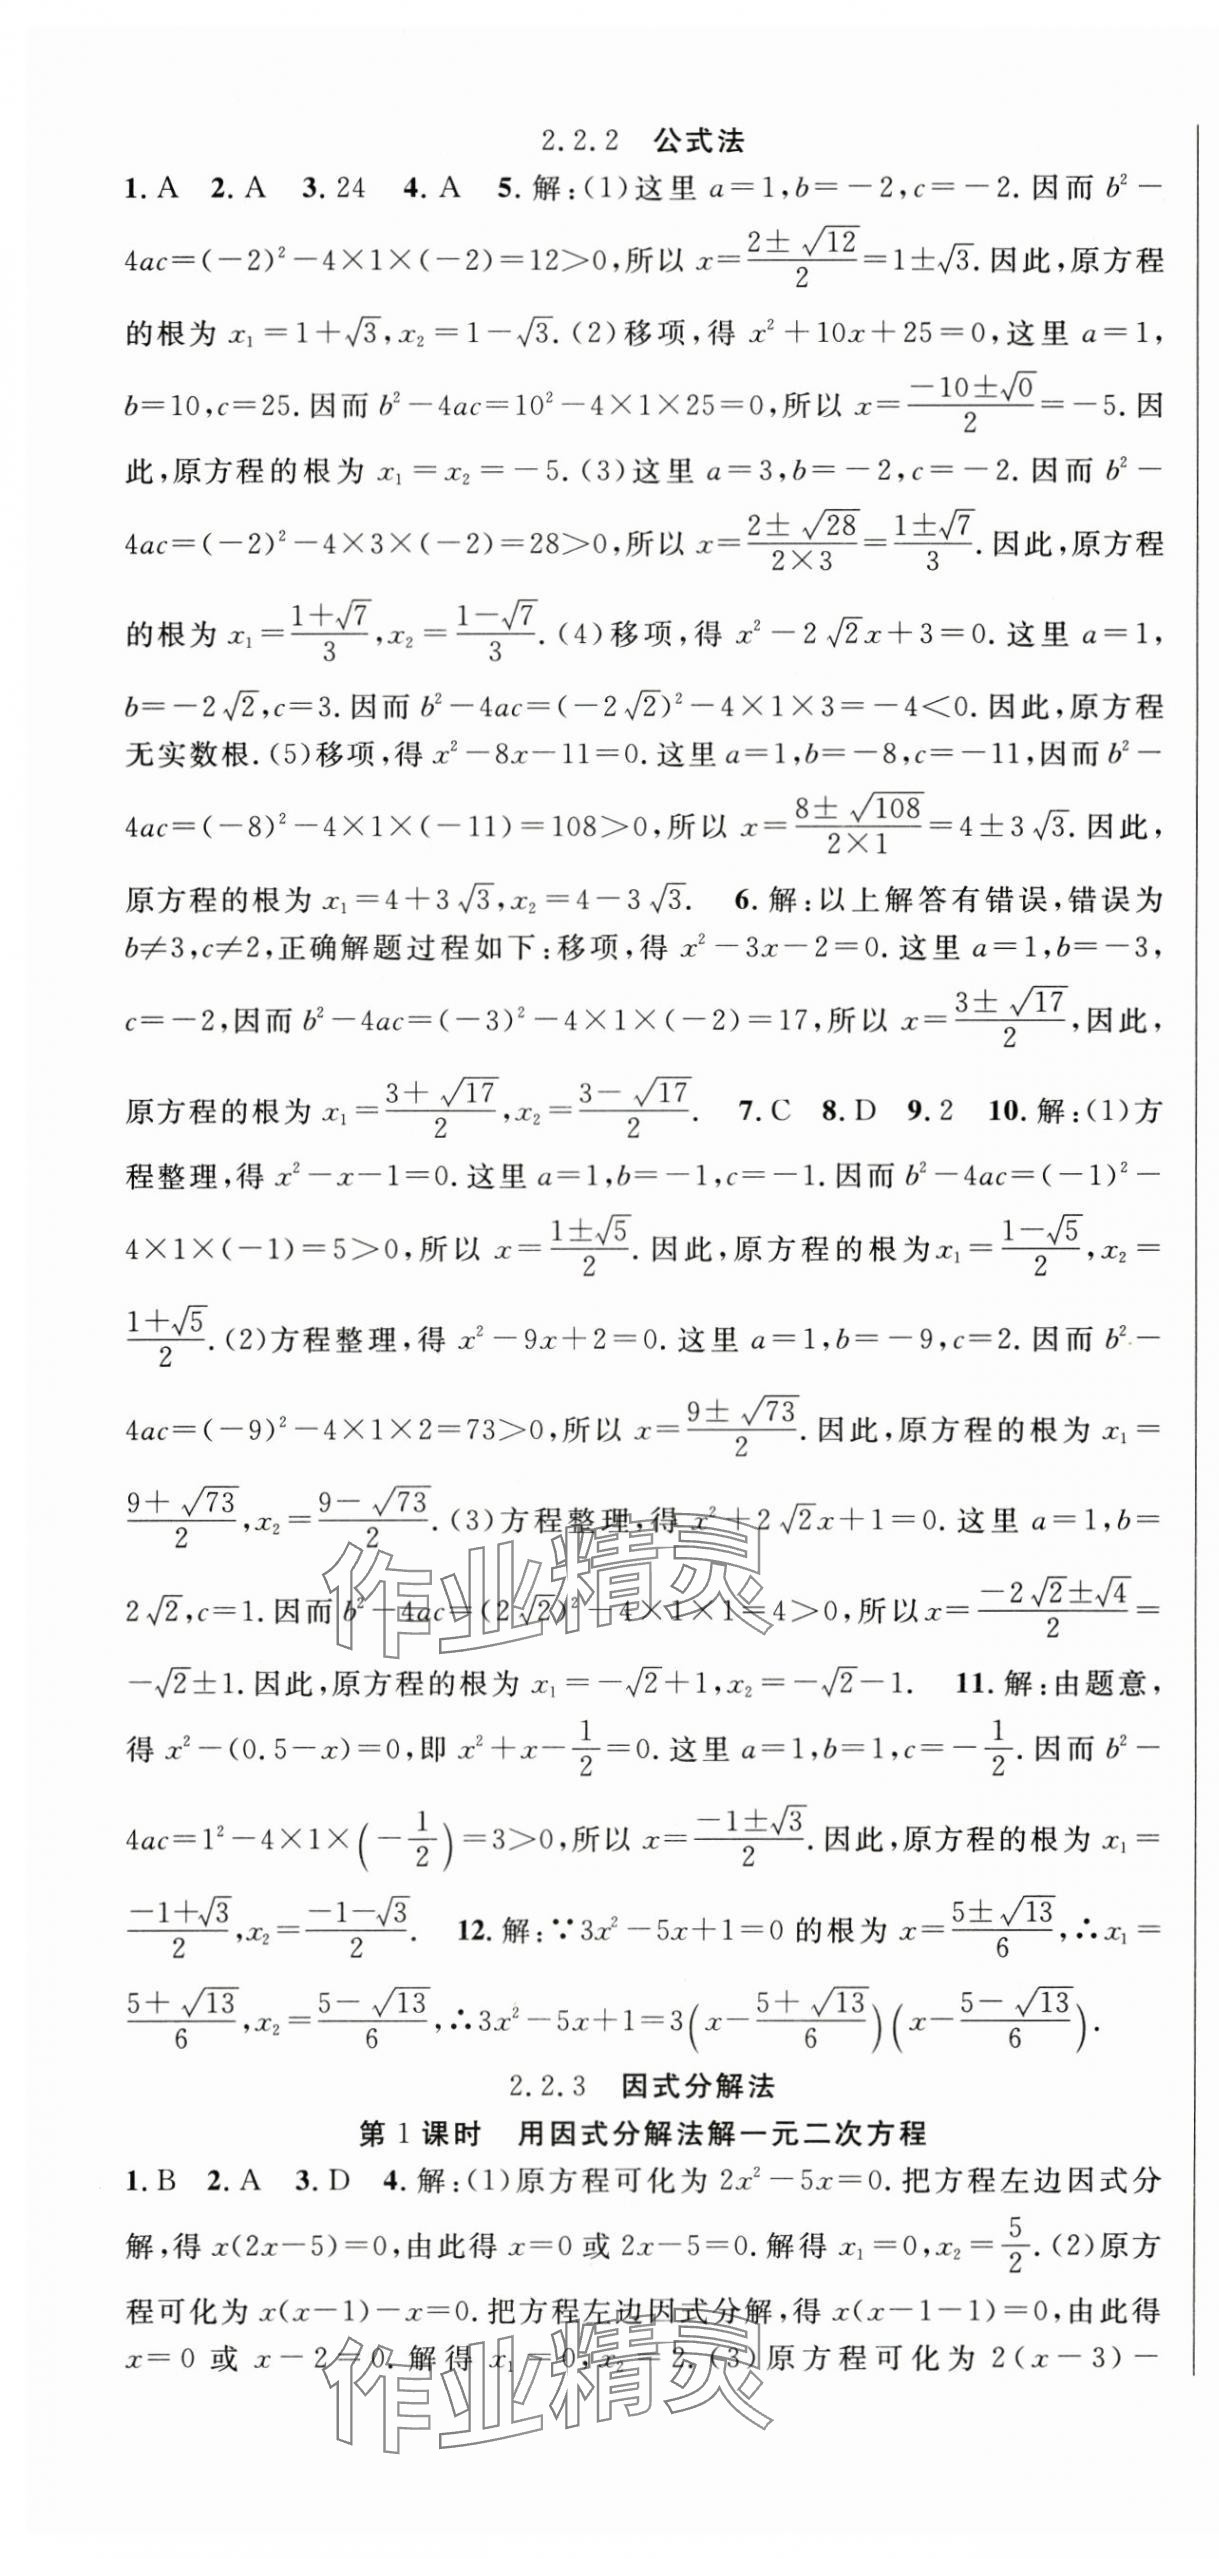 2.2.2 公式法
1.A 2.A 3.24 4.A 5.解:(1)这里 a=1,b=-2,c=-2.因而 b²-
4ac=(-2)²-4×1×(-2)=12>0,所以 x=\frac{2±√12}{2}=1±√3.因此,原方程
的根为 x₁=1+√3,x₂=1-√3.(2)移项,得 x²+10x+25=0,这里 a=1,
b=10,c=25.因而 b²-4ac=10²-4×1×25=0,所以 x=\frac{-10±√0}{2}=-5.因
此,原方程的根为 x₁=x₂=-5.(3)这里 a=3,b=-2,c=-2.因而 b²-
4ac=(-2)²-4×3×(-2)=28>0,所以 x=\frac{2±√28}{2×3}=\frac{1±√7}{3}.因此,原方程
的根为 x₁=\frac{1+√7}{3},x₂=\frac{1-√7}{3}.(4)移项,得 x²-2√2x+3=0.这里 a=1,
b=-2√2,c=3.因而 b²-4ac=(-2√2)²-4×1×3=-4<0.因此,原方程
无实数根.(5)移项,得 x²-8x-11=0.这里 a=1,b=-8,c=-11,因而 b²-
4ac=(-8)²-4×1×(-11)=108>0,所以 x=\frac{8±√108}{2×1}=4±3√3.因此,
原方程的根为 x₁=4+3√3,x₂=4-3√3. 6.解:以上解答有错误,错误为
b≠3,c≠2,正确解题过程如下:移项,得 x²-3x-2=0.这里 a=1,b=-3,
c=-2,因而 b²-4ac=(-3)²-4×1×(-2)=17,所以 x=\frac{3±√17}{2},因此,
原方程的根为 x₁=\frac{3+√17}{2},x₂=\frac{3-√17}{2}. 7.C 8.D 9.2 10.解:(1)方
程整理,得 x²-x-1=0.这里 a=1,b=-1,c=-1.因而 b²-4ac=(-1)²-
4×1×(-1)=5>0,所以 x=\frac{1±√5}{2}.因此,原方程的根为x₁=\frac{1-√5}{2},x₂=
\frac{1+√5}{2}.(2)方程整理,得 x²-9x+2=0.这里 a=1,b=-9,c=2.因而 b²-
4ac=(-9)²-4×1×2=73>0,所以 x=\frac{9±√73}{2}.因此,原方程的根为 x₁=
\frac{9+√73}{2},x₂=\frac{9-√73}{2}.(3)方程整理,得 x²+2√2x+1=0.这里 a=1,b=
2√2,c=1.因而 b²-4ac=(2√2)²-4×1×1=4>0,所以x=\frac{-2√2±√4}{2}=
-√2±1.因此,原方程的根为 x₁=-√2+1,x₂=-√2-1. 11.解:由题意,
得 x²-(0.5-x)=0,即 x²+x-\frac{1}{2}=0.这里 a=1,b=1,c=-\frac{1}{2}.因而 b²-
4ac=1²-4×1×(-\frac{1}{2})=3>0,所以 x=\frac{-1±√3}{2}.因此,原方程的根为 x₁=
\frac{-1+√3}{2},x₂=\frac{-1-√3}{2}. 12.解:∵3x²-5x+1=0 的根为 x=\frac{5±√13}{6},∴x₁=
\frac{5+√13}{6},x₂=\frac{5-√13}{6},∴3x²-5x+1=3(x-\frac{5+√13}{6})(x-\frac{5-√13}{6}).
2.2.3 因式分解法
第1课时 用因式分解法解一元二次方程
1.B 2.A 3.D 4.解:(1)原方程可化为 2x²-5x=0.把方程左边因式分
解,得 x(2x-5)=0,由此得 x=0 或 2x-5=0.解得 x₁=0,x₂=\frac{5}{2}.(2)原方
程可化为 x(x-1)-x=0.把方程左边因式分解,得 x(x-1-1)=0,由此得
x=0 或 x-2=0.解得 x₁=0,x₂=2.(3)原方程可化为 2(x-3)-
作业精灵
作业精灵